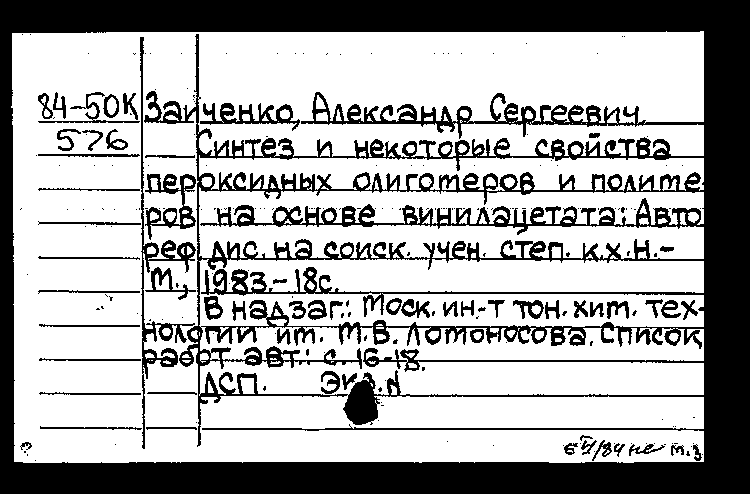 84-50К Заиченко, Александр Сергеевич.
576 Синтез и некоторые свойства
пероксидных олигомеров и полиме-
ров на основе винилацетата: Авто
реф. дис. на соиск. учен. степ. к.х.н.-
М., 1983.-18с.
В надзаг.: Моск. ин-т тон. хим. тех-
нологии им. М.В. Ломоносова. Список
работ авт.: с. 16-18.
ДСП. Экз. N
м.з